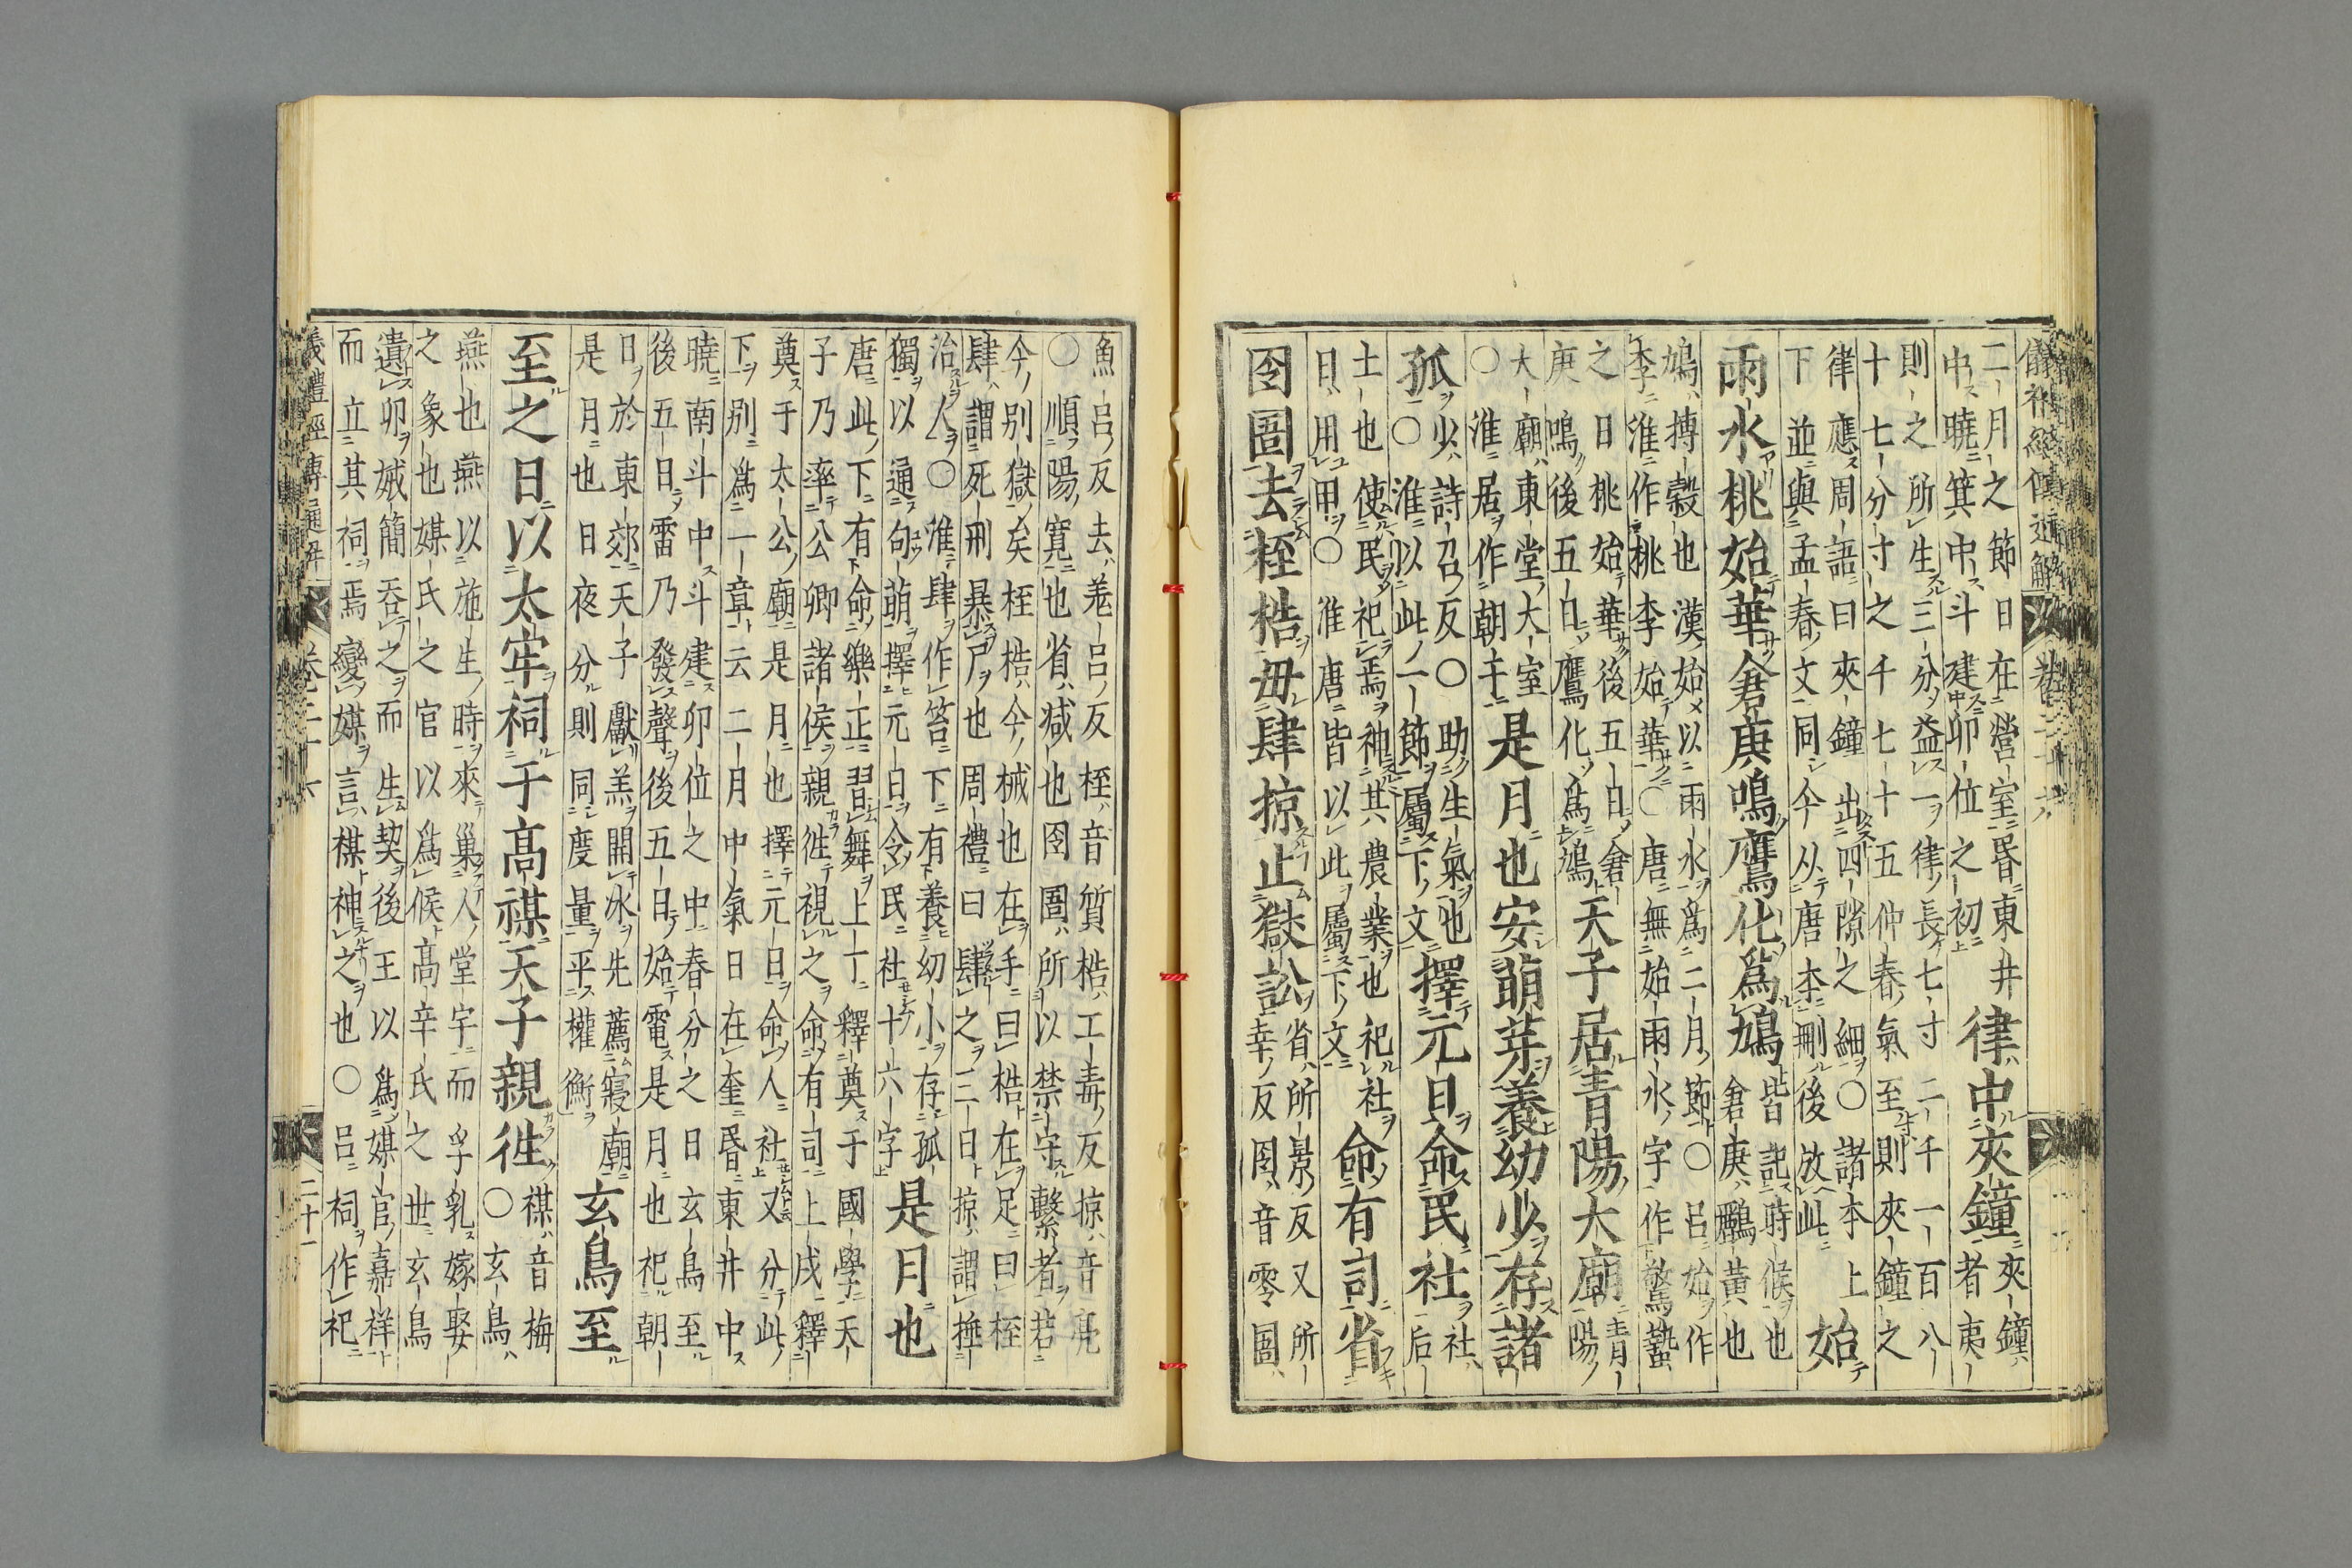 儀禮經傳通解 卷二十六
二月之節日在營室昏東井
中曉箕中斗建卯位之初
律中夾鐘
夾鐘
者夷
則之所生三分益一律長七寸二千一百八
十七分寸之千七十五仲春氣至則夾鐘之
律應周語曰夾鐘出四隙之細〇諸本上
下並與孟春文同今从唐本刪後放此
始
雨水桃始華倉庚鳴鷹化爲鳩
皆記時候也
倉庚鸝黃也
鳩搏穀也漢始以雨水爲二月節〇呂始作
李淮作桃李始華〇唐無始雨水字作驚蟄
之日桃始華後五日倉
庚鳴後五日鷹化爲鳩
天子居青陽大廟
青
陽
大廟東堂大室
〇淮居作朝于
是月也安萌芽養幼少存諸
孤
少詩召反〇助生氣也
〇淮以此一節屬下文
擇元日命民社
社
后
土也使民祀焉神其農業也祀社
日用甲〇淮唐皆以此屬下文
命有司省
囹圄去桎梏毋肆掠止獄訟
省所景反又所
幸反囹音零圄
魚呂反去羌呂反桎音質梏工毒反掠音亮
〇順陽寬也省減也囹圄所以禁守繫者若
今別獄矣桎梏今械也在手曰梏在足曰桎
肆謂死刑暴尸也周禮曰肆之三日掠謂捶
治人〇淮肆作笞下有養幼小存孤
獨以通句萌擇元日令民社十六字
是月也
唐此下有命樂正習舞上丁釋奠于國學天
子乃率公卿諸侯親往視之命有司上戊釋
奠于太公廟是月也擇元日命人社又分此
下別爲一章云二月中氣日在奎昏東井中
曉南斗中斗建卯位之中春分之日玄鳥至
後五日雷乃發聲後五日始電是月也祀朝
日於東郊天子獻羔開冰先薦寢廟
是月也日夜分則同度量平權衡
玄鳥至
至之日以太牢祠于高禖天子親往
禖音梅
〇玄鳥
燕也燕以施生時來巢人堂宇而孚乳嫁娶
之象也媒氏之官以爲候高辛氏之世玄鳥
遺卵娀簡吞之而生契後王以爲媒官嘉祥
而立其祠焉變媒言禖神之也〇呂祠作祀
儀禮經傳通解 卷二十六 二十一